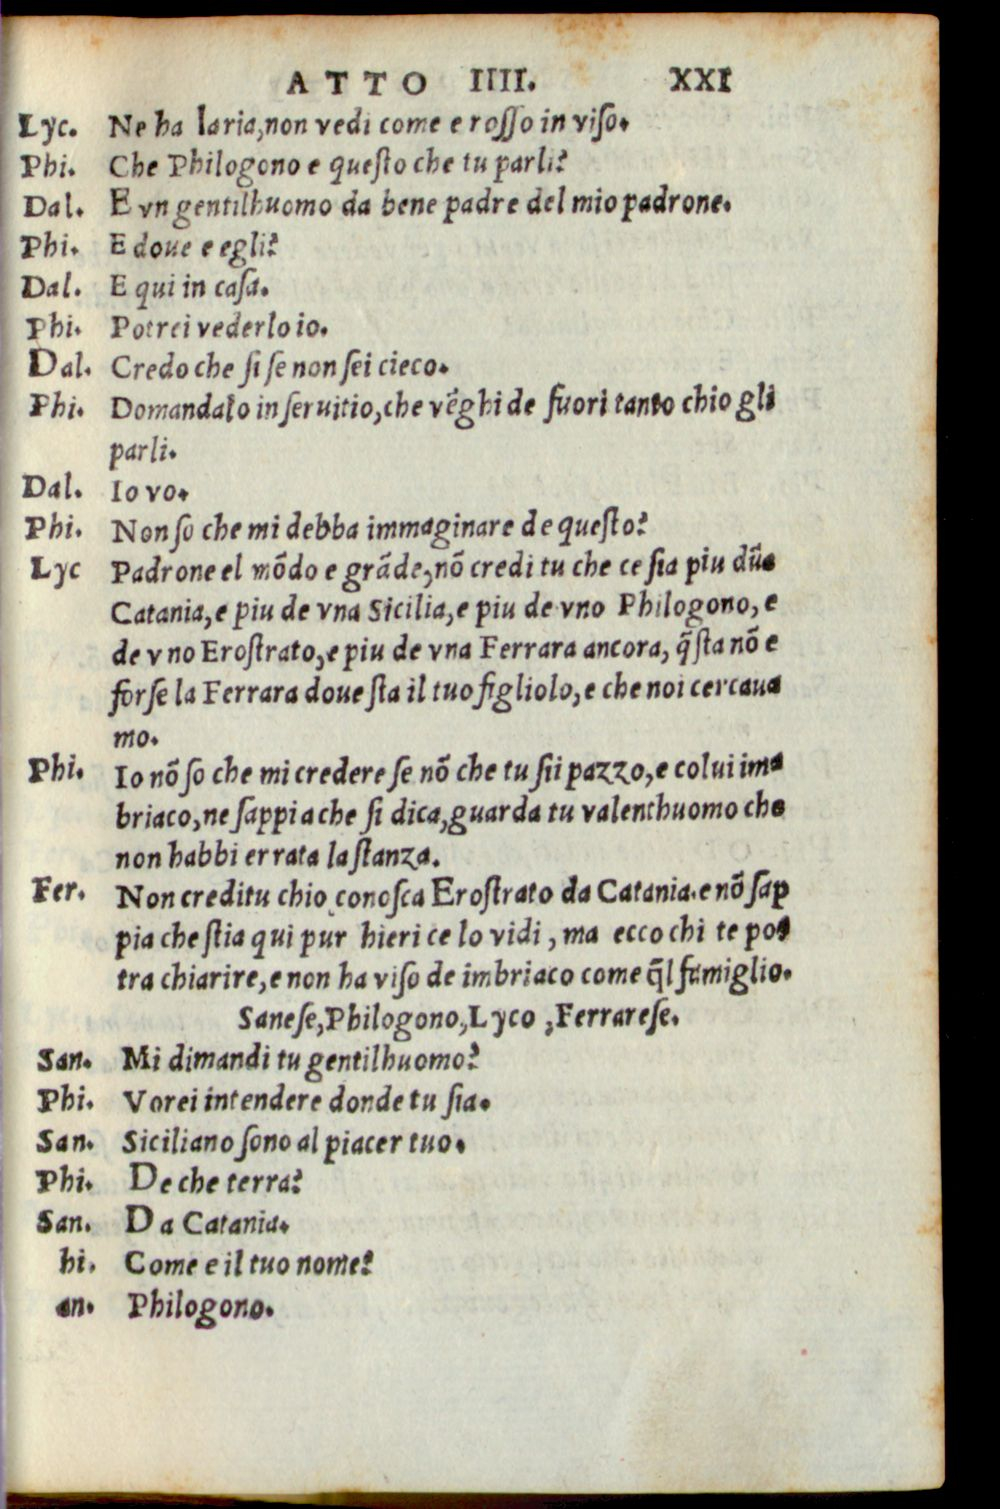 ATTO IIII. XXI
Lyc. Ne ha laria,non vedi come e roſſo in viſo.
Phi. Che Philogono e queſto che tu parli?
Dal. E vn gentilhuomo da bene padre del mio padrone.
Phi. E doue e egli?
Dal. E qui in caſa.
Phi. Potrei vederlo io.
Dal. Credo che ſi ſe non ſei cieco.
Phi. Domandalo in ſeruitio,che vēghi de fuori tanto chio gli
parli.
Dal. Io vo.
Phi. Non ſo che mi debba immaginare de queſto?
Lyc Padrone el mōdo e grāde,nō credi tu che ce ſia piu dūa
Catania,e piu de vna Sicilia,e piu de vno Philogono,e
de vno Eroſtrato,e piu de vna Ferrara ancora, q̄ſta nō e
forſe la Ferrara doue ſta il tuo figliolo,e che noi cercaua
mo.
Phi. Io nō ſo che mi credere ſe nō che tu ſii pazzo,e colui ima
briaco,ne ſappia che ſi dica,guarda tu valenthuomo che
non habbi errata la ſtanza.
Fer. Non credi tu chio conoſca Eroſtrato da Catania.e nō ſap
pia che ſtia qui pur hieri ce lo vidi, ma ecco chi te po
tra chiarire,e non ha viſo de imbriaco come q̄l famiglio.
Saneſe,Philogono,Lyco ,Ferrareſe.
San. Mi dimandi tu gentilhuomo?
Phi. Vorei intendere donde tu ſia.
San. Siciliano ſono al piacer tuo.
Phi. De che terra?
San. Da Catania.
hi. Come e il tuo nome?
an. Philogono.